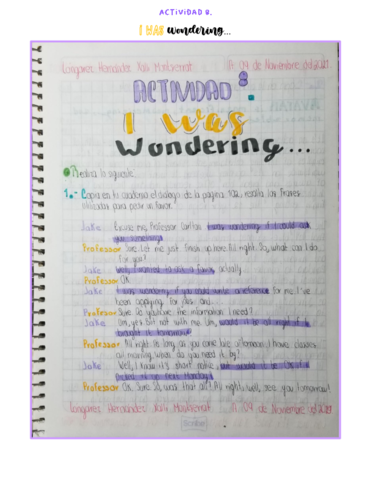 ACTIVIDAD 8.
I WAS wondering...
Longares Hernandez Montserrat 1A 04 de Noviembre
ACTIVIDAD 8.
I Was
Wondering...
Realiza lo siguiente
1.- Copia en tu cuaderno el dialogo de la pagina 102, resalta las frases
utilizadas para pedir un favor.
Jake Excuse me, Professor I was wondering if I could ask
you something
Professor Sure. Let me just finish up here. All right. So, what can I do
for you?
Jake Well, I wanted to ask a favor, actually
Professor OK
Jake I was wondering if you could write a reference for me. I've
been applying for jobs and
Professor Sure. Do you have the information I need?
Jake Um, yes but not with me. Um, would it be all right if I
brought it tomorrow
Professor All right. As long as you come late afternoon. I have classes
all morning. When do you need it by?
Jake Well, I know it's short notice, but would be OK if I
picked it up next Monday?
Professor OK. Sure. So, was that all? All right, well, see you tomorrow!
Longares Hernandez Montserrat 1A 04 de Noviembre
Scribe